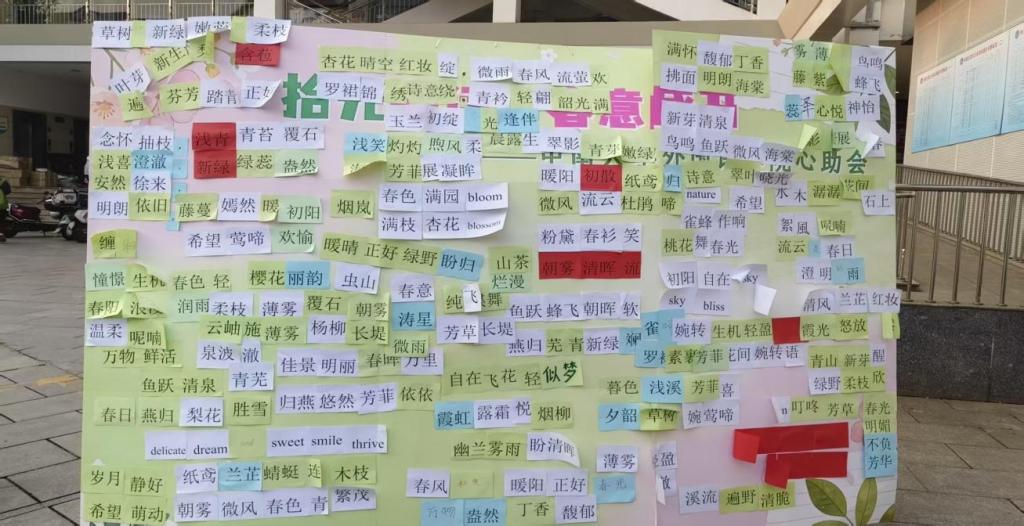 草树 新绿 嫩蕊 柔枝
新生 含苞
叶芽
遍 芬芳 踏青 正好
杏花 晴空 红妆 绽
微雨 春风 流萤 欢
罗裙锦 绣诗意绕
青衿 轻翩 韶光 满
满怀 馥郁 丁香
拂面 明朗 海棠
薄 鸟鸣
藤 紫 蜂飞
蕊 心悦 神怡
拾光
春意
玉兰 初绽 光 逢伴
新芽 清泉
念怀 抽枝 浅青 青苔 覆石
浅笑 灼灼 煦风 柔
晨露 生 翠影 青芽 嫩绿
鸟鸣 鱼跃 微风 海棠
浅喜 澄澈 新绿 绿蕊 盎然
芳菲 展 凝眸
暖阳 初散 纸鸢 归 诗意 翠叶 晓光
安然 徐来
nature 希望 水木 潺潺 花间
明朗 依旧 藤蔓 嫣然 暖 初阳 烟岚
春色 满园 bloom
微风 流云 杜鹃 啼
石上
满枝 杏花 blossom
雀蜂 作响 絮風 呢喃
缠 希望 莺啼 欢愉
暖晴 正好 绿野 盼归
粉黛 春衫 笑
桃花 舞 春光 流云 春日
山茶 烂漫
朝雾 清晖 流
澄明 雨
憧憬 生机 春色 轻 樱花 丽韵 虫山
春意
初阳 自在 sky
sky bliss
清风 兰芷 红妆
润雨 柔枝 薄雾 覆石 朝雾
涛星
纯 飞 舞
鱼跃 蜂飞 朝晖 软
温柔 呢喃 云岫 施 薄雾 杨柳 长堤
芳草 长堤
雀 婉转 生机 轻盈 霞光 怒放
万物 鲜活 泉波 澈
微雨
燕归 芜 青 新绿
芳菲 花间 婉转 语
佳景 明丽 春晖 万里
青山 新芽 醒
鱼跃 清泉 青芜
归燕 悠然 芳菲 依依
自在 飞花 轻 似梦
暮色 浅溪 芳菲 喜
绿野 柔枝 欣
春日 燕归 梨花 胜雪
霞虹 露霜 悦 烟柳
夕韶 草树 婉莺啼
叮咚 芳草 春光
明媚
不负
芳华
delicate dream
sweet smile thrive
幽兰 雾雨 盼清晖
薄雾
岁月 静好 纸鸢 兰芷 蜻蜓 连 木枝
春风 暖阳 正好
希望 萌动 朝雾 微风 春色 青 繁茂
盎然 丁香 馥郁
溪流 遍野 清脆